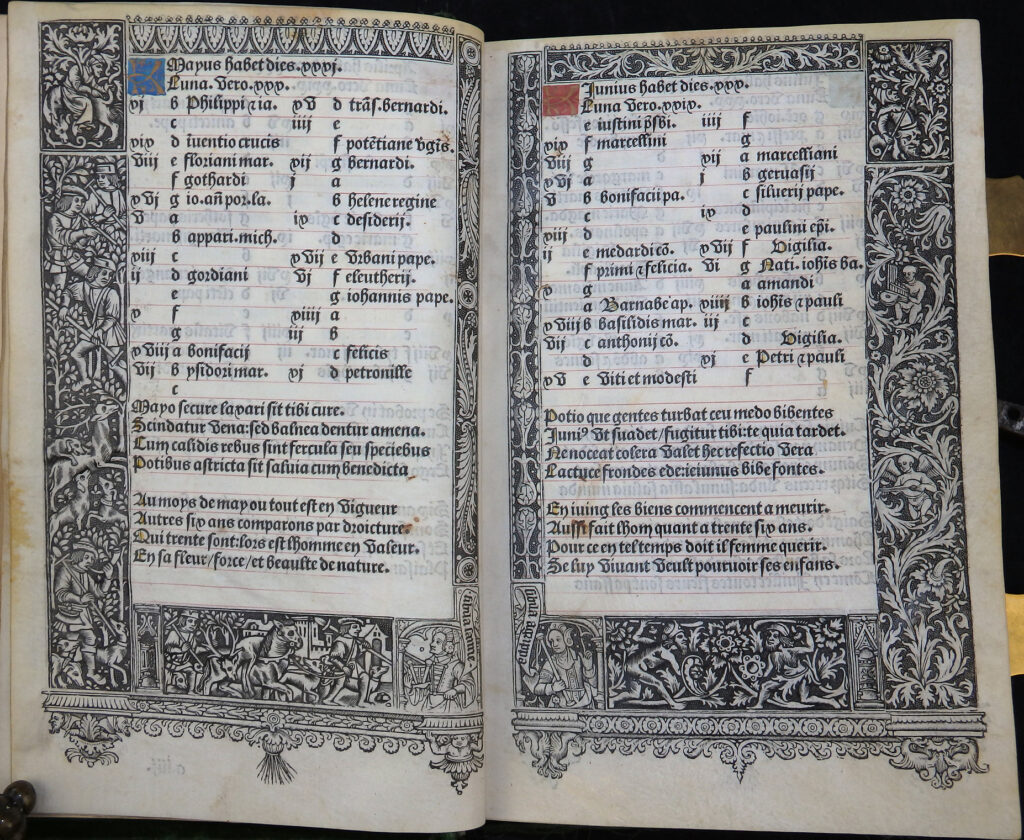 Mayus habet dies.xxxj.
Luna.Vero.xxx.
xj b Philippi ⁊ ia. xv d trãs.bernardi.
c iiij e
xix d iuentio crucis f potẽtiane vgis.
viij e floriani mar. xij g bernardi.
f gothardi j a
xvj g io.añ por.la. b helene regine
v a ix c desiderij.
b appari.mich. d
xiij c xvij e Vrbani pape.
ij d gordiani vj f eleutherij.
e g iohannis pape.
x f xiiij a
g iij b
xviij a bonifacij c felicis
vij b ysidori mar. xj d petronille
c
Mayo secure laxari sit tibi cure.
Scindatur vena: sed balnea dentur amena.
Cum calidis rebus sint fercula seu speciebus
Potibus astricta sit saluia cum benedicta
Au moys de may ou tout est en vigueur
Autres six ans comparons par droicture.
Qui trente sont: lors est lhomme en valeur.
En sa fleur/force/et beaulte de nature.
Junius habet dies.xxx.
Luna Vero.xxix.
e iustini pſbi. iiij f
xix f marcellini g
viij g xij a marcelliani
xvj a j b geruasij
v b bonifacii pa. c siluerij pape.
c ix d
xiij d e paulini eᵽi.
ij e medardi cõ. xvij f Vigilia.
f primi ⁊ felicia. vi g Nati.iohis ba.
x g a amandi
a Barnabe ap. xiiij b iohis ⁊ pauli
xviij b basilidis mar. iij c
vij c anthonij cõ. d Vigilia.
d xj e Petri ⁊ pauli
xv e Viti et modesti f
Potio que gentes turbat ceu medo bibentes
Juniꝰ vt suadet/fugitur tibi: te quia tardet.
Ne noceat colera valet hec refectio vera
Lactuce frondes ede: ieiunus bibe fontes.
En iuing les biens commencent a meurir.
Aussi fait lhom quant a trente six ans.
Pour ce en tel temps doit il femme querir.
Se luy viuant veult pouruoir ses enfans.